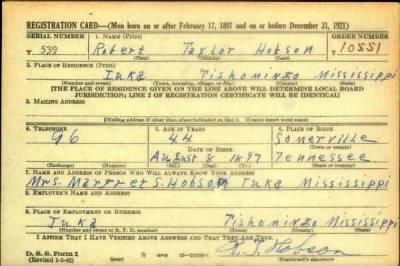 REGISTRATION CARD—(Men born on or after February 17, 1897 and on or before December 31, 1921)
SERIAL NUMBER 1. NAME (Print) ORDER NUMBER
T 539 Robert Taylor Hobson 10551
(First) (Middle) (Last)
2. PLACE OF RESIDENCE (Print)
Iuka Tishomingo Mississippi
(Number and street) (Town, township, village, or city) (County) (State)
[THE PLACE OF RESIDENCE GIVEN ON THE LINE ABOVE WILL DETERMINE LOCAL BOARD
JURISDICTION; LINE 2 OF REGISTRATION CERTIFICATE WILL BE IDENTICAL]
3. MAILING ADDRESS
[Mailing address if other than place indicated on line 2. If same insert word same]
4. TELEPHONE 5. AGE IN YEARS 6. PLACE OF BIRTH
96 44 Somerville
DATE OF BIRTH (Town or county)
August 8 1897 Tennessee
(Exchange) (Number) (Mo.) (Day) (Yr.) (State or country)
7. NAME AND ADDRESS OF PERSON WHO WILL ALWAYS KNOW YOUR ADDRESS
Mrs. Margret S. Hobson Iuka Mississippi
8. EMPLOYER'S NAME AND ADDRESS
9. PLACE OF EMPLOYMENT OR BUSINESS
Iuka Tishomingo Mississippi
(Number and street or R. F. D. number) (Town) (County) (State)
I AFFIRM THAT I HAVE VERIFIED ABOVE ANSWERS AND THAT THEY ARE TRUE.
D. S. S. Form 1
(Revised 1-1-42) (over) GPO R. T. Hobson
(Registrant's signature)